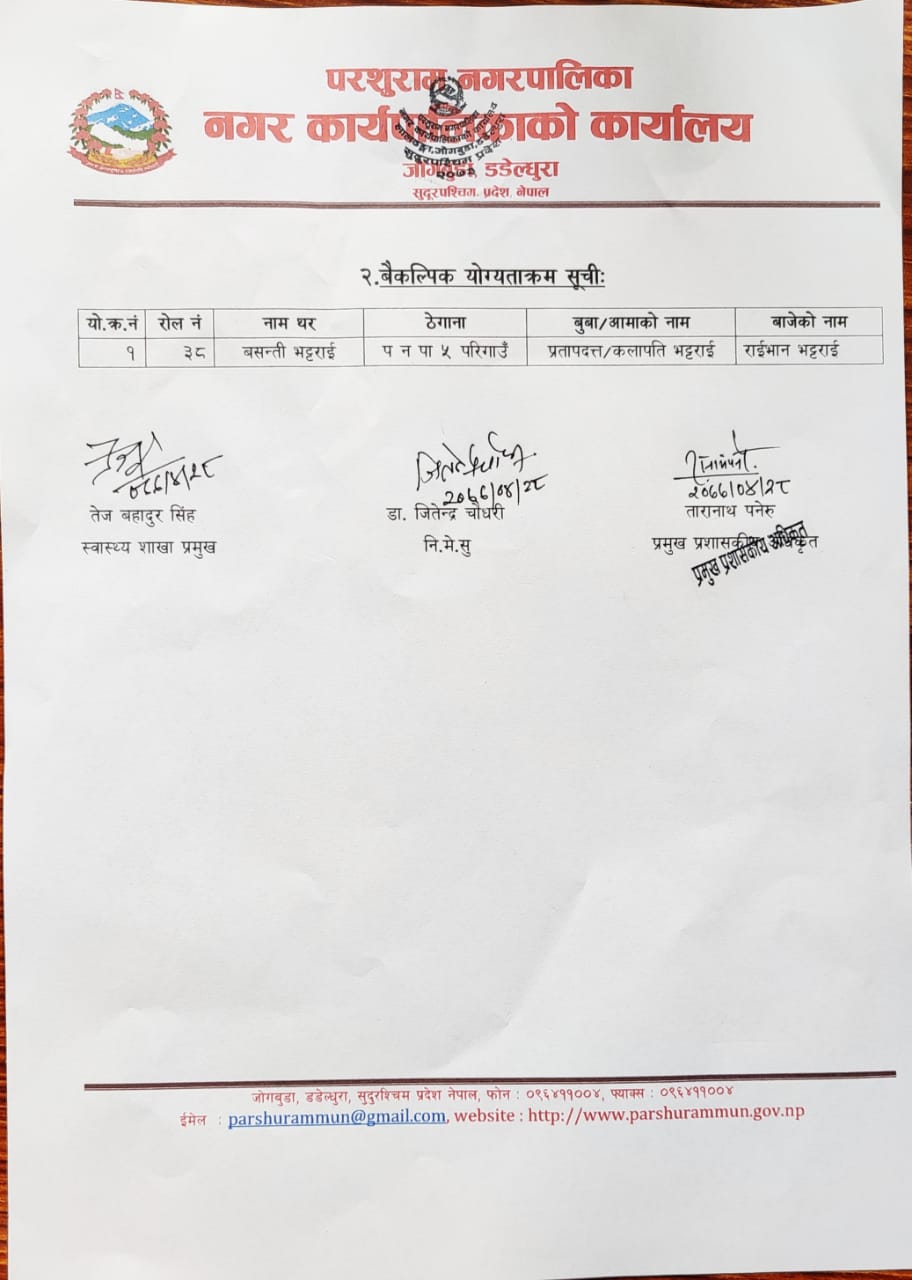 परशुराम नगरपालिका
नगर कार्यपालिकाको कार्यालय
जोगबुडा, डडेल्धुरा
सुदूरपश्चिम प्रदेश, नेपाल
२.बैकल्पिक योग्यताक्रम सूचीः
यो.क्र.नं रोल नं नाम थर ठेगाना बुबा/आमाको नाम बाजेको नाम
१ ३८ बसन्ती भट्टराई प न पा ५ परिगाउँ प्रतापदत्त/कलापति भट्टराई राईभान भट्टराई
२०७७/०४/२८ २०७७/०४/२८
तेज बहादुर सिंह डा. जितेन्द्र चौधरी तारानाथ पनेरु
स्वास्थ्य शाखा प्रमुख नि.मे.सु प्रमुख प्रशासकीय अधिकृत
प्रमुख प्रशासकीय अधिकृत
जोगबुडा, डडेल्धुरा, सुदुरश्चिम प्रदेश नेपाल, फोन : ०९६४११००४, फ्याक्स : ०९६४११००४
ईमेल : parshurammun@gmail.com, website : http://www.parshurammun.gov.np